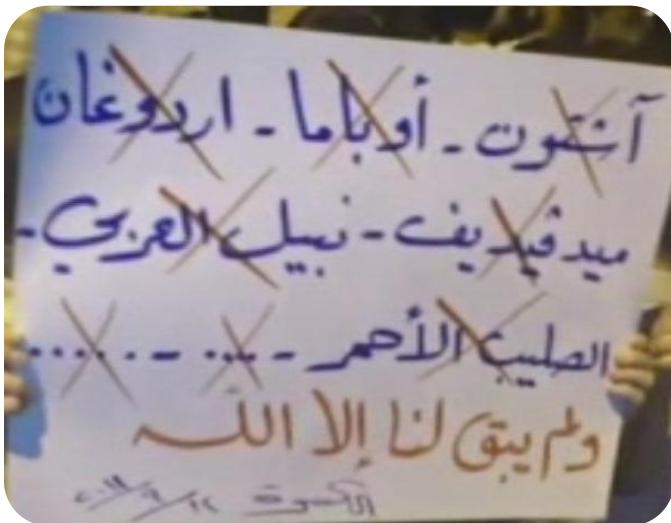 آشتون - أوباما - اردوغان
ميدڤيديف - نبيل العربي -
الصليب الأحمر - .... - ......
ولم يبق لنا إلا الله
الكسوة